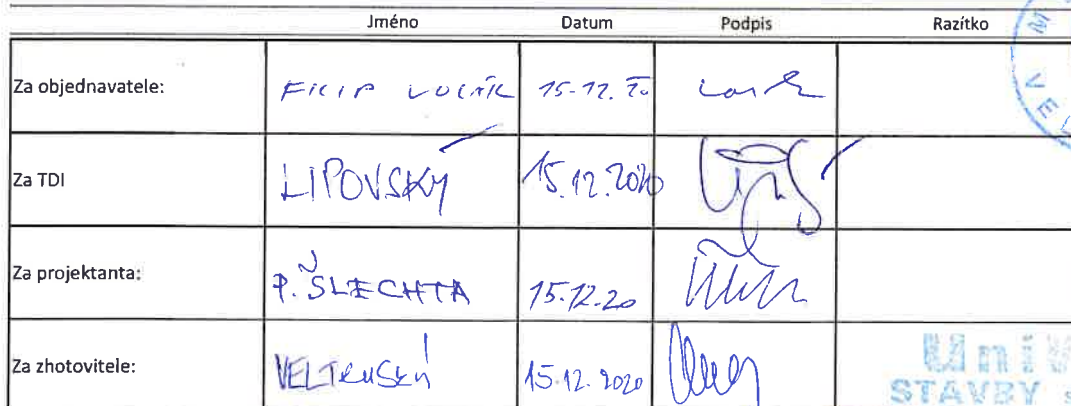 Jméno Datum Podpis Razítko
Za objednavatele: FILIP 15.12.20
Za TDI LIPOVSKÝ 15.12.2020
Za projektanta: P. ŠLECHTA 15.12.20
Za zhotovitele: VELTENSKÝ 15.12.2020
STAVBY